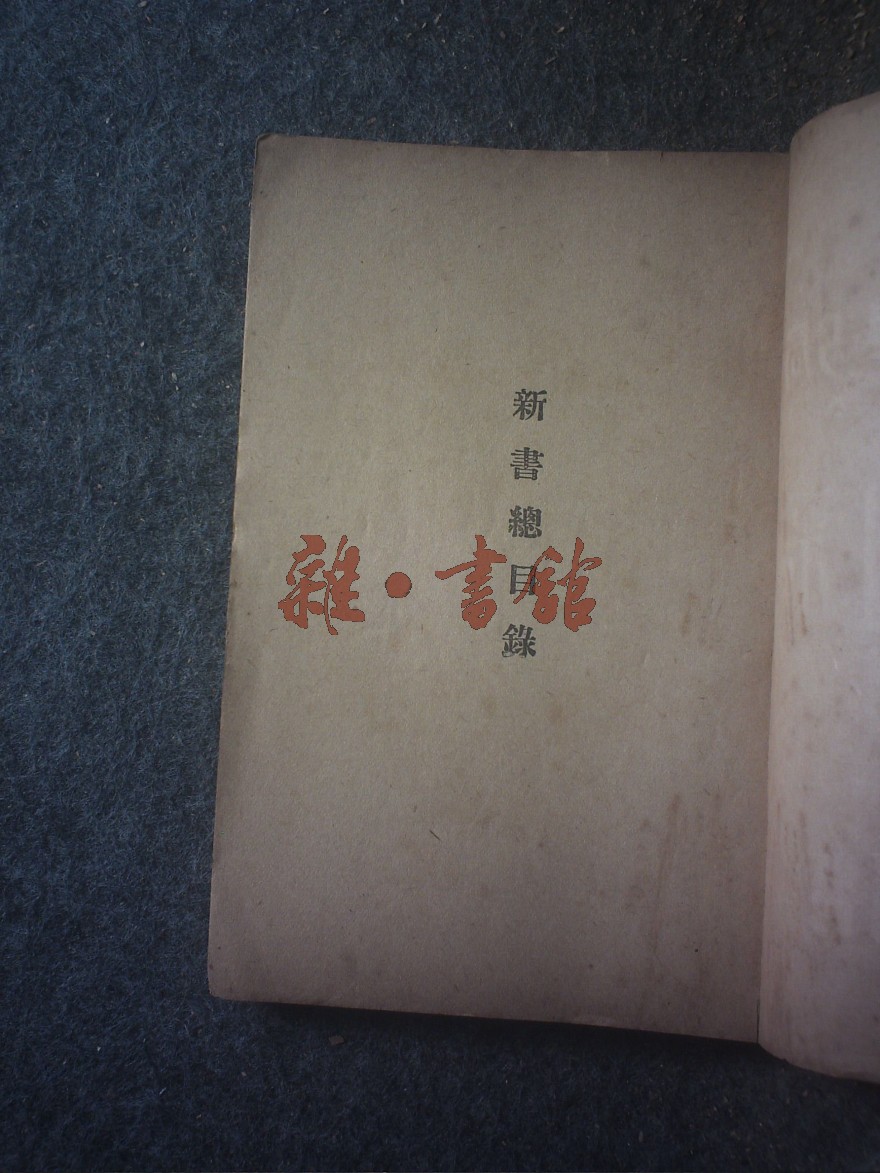 新書總目錄
雜·書館